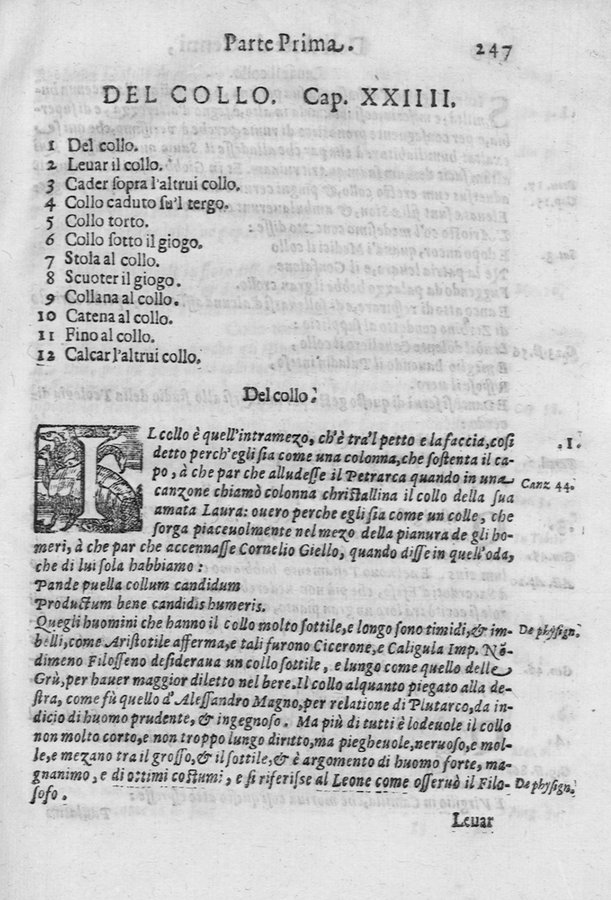 Parte Prima. 247
DEL COLLO. Cap. XXIIII.
1 Del collo.
2 Leuar il collo.
3 Cader sopra l'altrui collo.
4 Collo caduto su'l tergo.
5 Collo torto.
6 Collo sotto il giogo.
7 Stola al collo.
8 Scuoter il giogo.
9 Collana al collo.
10 Catena al collo.
11 Fino al collo.
12 Calcar l'altrui collo.
Del collo.
IL collo è quell'intramezo, ch'è tra'l petto e la faccia, così .1.
detto perch'egli sia come una colonna, che sostenta il ca-
po, à che par che alludesse il Petrarca quando in una Canz 44.
canzone chiamò colonna christallina il collo della sua
amata Laura: ouero perche egli sia come un colle, che
sorga piaceuolmente nel mezo della pianura de gli ho-
meri, à che par che accennasse Cornelio Giello, quando disse in quell'oda,
che di lui sola habbiamo:
Pande puella collum candidum
Productum bene candidis humeris.
Quegli huomini che hanno il collo molto sottile, e longo sono timidi, & im- De physign.
belli, come Aristotile afferma, e tali furono Cicerone, e Caligula Imp. Nō-
dimeno Filosseno desideraua un collo sottile, e lungo come quello delle
Grù, per hauer maggior diletto nel bere. Il collo alquanto piegato alla de-
stra, come fù quello d'Alessandro Magno, per relatione di Plutarco, da in-
dicio di huomo prudente, & ingegnoso. Ma più di tutti è lodeuole il collo
non molto corto, e non troppo lungo diritto, ma piegheuole, neruoso, e mol-
le, e mezano tra il grosso, & il sottile, & è argomento di huomo forte, ma-
gnanimo, e di ottimi costumi, e si riferisse al Leone come osseruò il Filo- De physign.
sofo.
Leuar